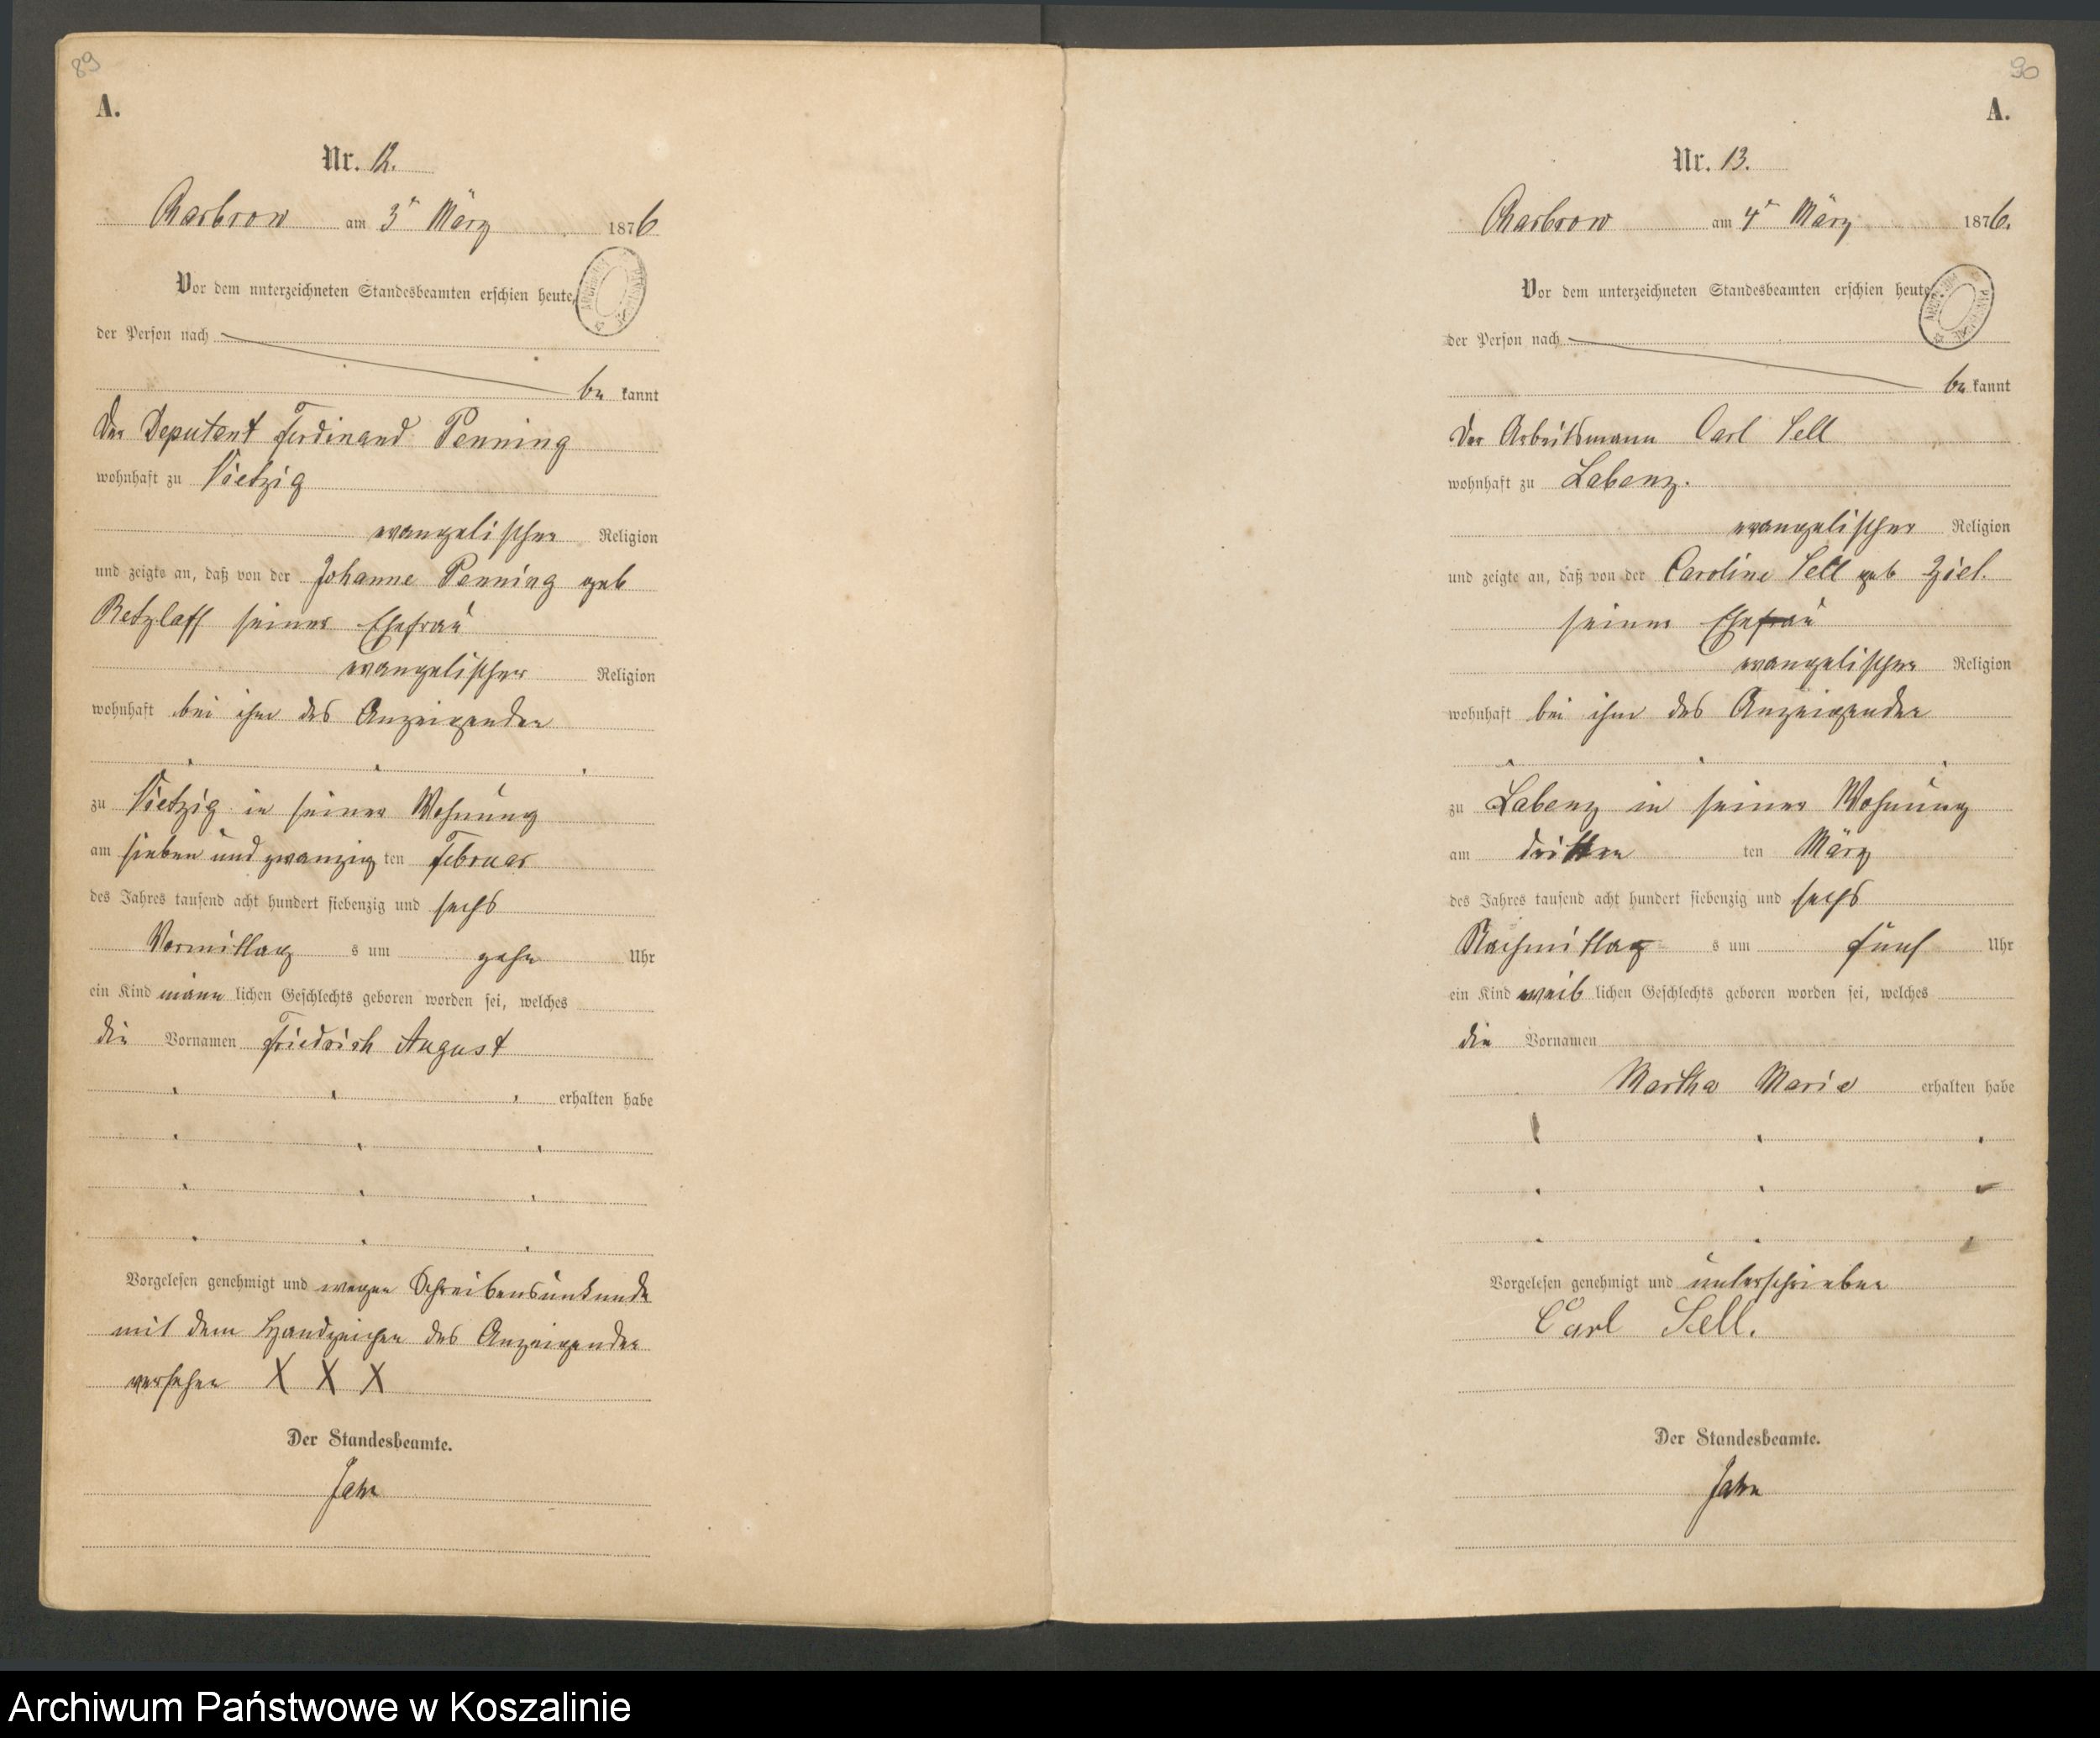 89
A.
Nr. 12.
Charbrow am 3ᵗ März 1876
Vor dem unterzeichneten Standesbeamten erschien heute,
der Person nach
be kannt
der Deputant Ferdinand Penning
wohnhaft zu Vietzig
evangelischer Religion
und zeigte an, daß von der Johanne Penning geb
Retzlaff seiner Ehefrau
evangelischer Religion
wohnhaft bei ihm des Anzeigenden
zu Vietzig in seiner Wohnung
am sieben und zwanzig ten Februar
des Jahres tausend acht hundert siebenzig und sechs
Vormittag s um zehn Uhr
ein Kind männ lichen Geschlechts geboren worden sei, welches
die Vornamen Friedrich August
erhalten habe
Vorgelesen genehmigt und wegen Schreibensunkunde
mit dem Handzeichen des Anzeigenden
versehen X X X
Der Standesbeamte.
Jahn
90
A.
Nr. 13.
Charbrow am 4ᵗ März 1876.
Vor dem unterzeichneten Standesbeamten erschien heute
der Person nach
be kannt
der Arbeitsmann Carl Sell
wohnhaft zu Labenz.
evangelischer Religion
und zeigte an, daß von der Caroline Sell geb Ziel.
seiner Ehefrau
evangelischer Religion
wohnhaft bei ihm des Anzeigenden
zu Labenz in seiner Wohnung
am dritten ten März
des Jahres tausend acht hundert siebenzig und sechs
Nachmittag s um fünf Uhr
ein Kind weib lichen Geschlechts geboren worden sei, welches
die Vornamen
Martha Marie erhalten habe
Vorgelesen genehmigt und unterschrieben
Carl Sell.
Der Standesbeamte.
Jahn
Archiwum Państwowe w Koszalinie